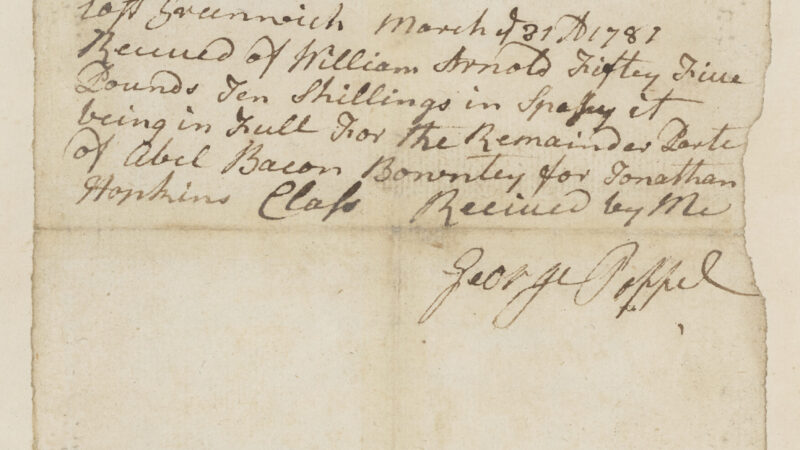 East Greenwich March ye 31th 1781
Received of William Arnold Fiftey Five
Pounds Ten Shillings in Spessy it
being in Full For the Remainder Parte
of Abel Bacon Bowntey for Jonathan
Hopkins Class Reciued by Me
George Poppel